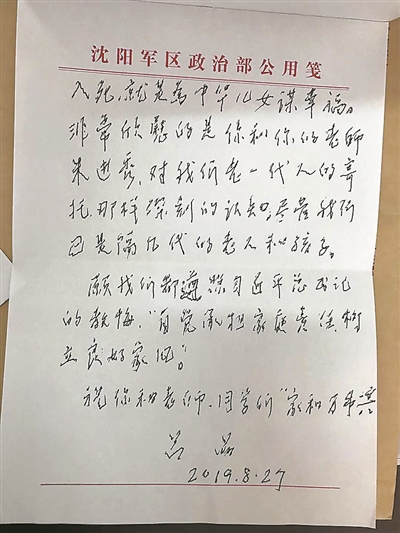 沈阳军区政治部公用笺
入死,就是为中华儿女谋幸福。
非常欣慰的是你和你的老师
朱进秀,对我们老一代人的寄
托,那样深刻的认知,尽管我们
已是隔几代的老人和孩子。
愿我们都遵照习近平总书记
的教悔,“自觉承担家庭责任,树
立良好家风”。
祝你和老师、同学们“家和万事兴
2019.8.27